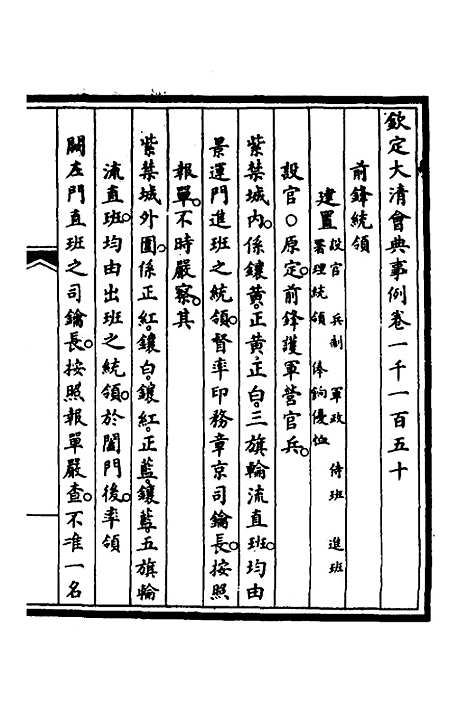 欽定大清會典事例卷一千一百五十
前鋒統領
建置 設官 兵制 軍政 侍班 進班
署理統領 俸餉優恤
設官○原定。前鋒護軍營官兵。
紫禁城內。係鑲黃。正黃。正白。三旗輪流直班。均由
景運門進班之統領。督率印務章京司鑰長。按照
報單。不時嚴察。其
紫禁城外圍。係正紅。鑲白。鑲紅。正藍。鑲藍五旗輪
流直班。均由出班之統領。於闔門後。率領
闕左門直班之司鑰長。按照報單嚴查。不准一名